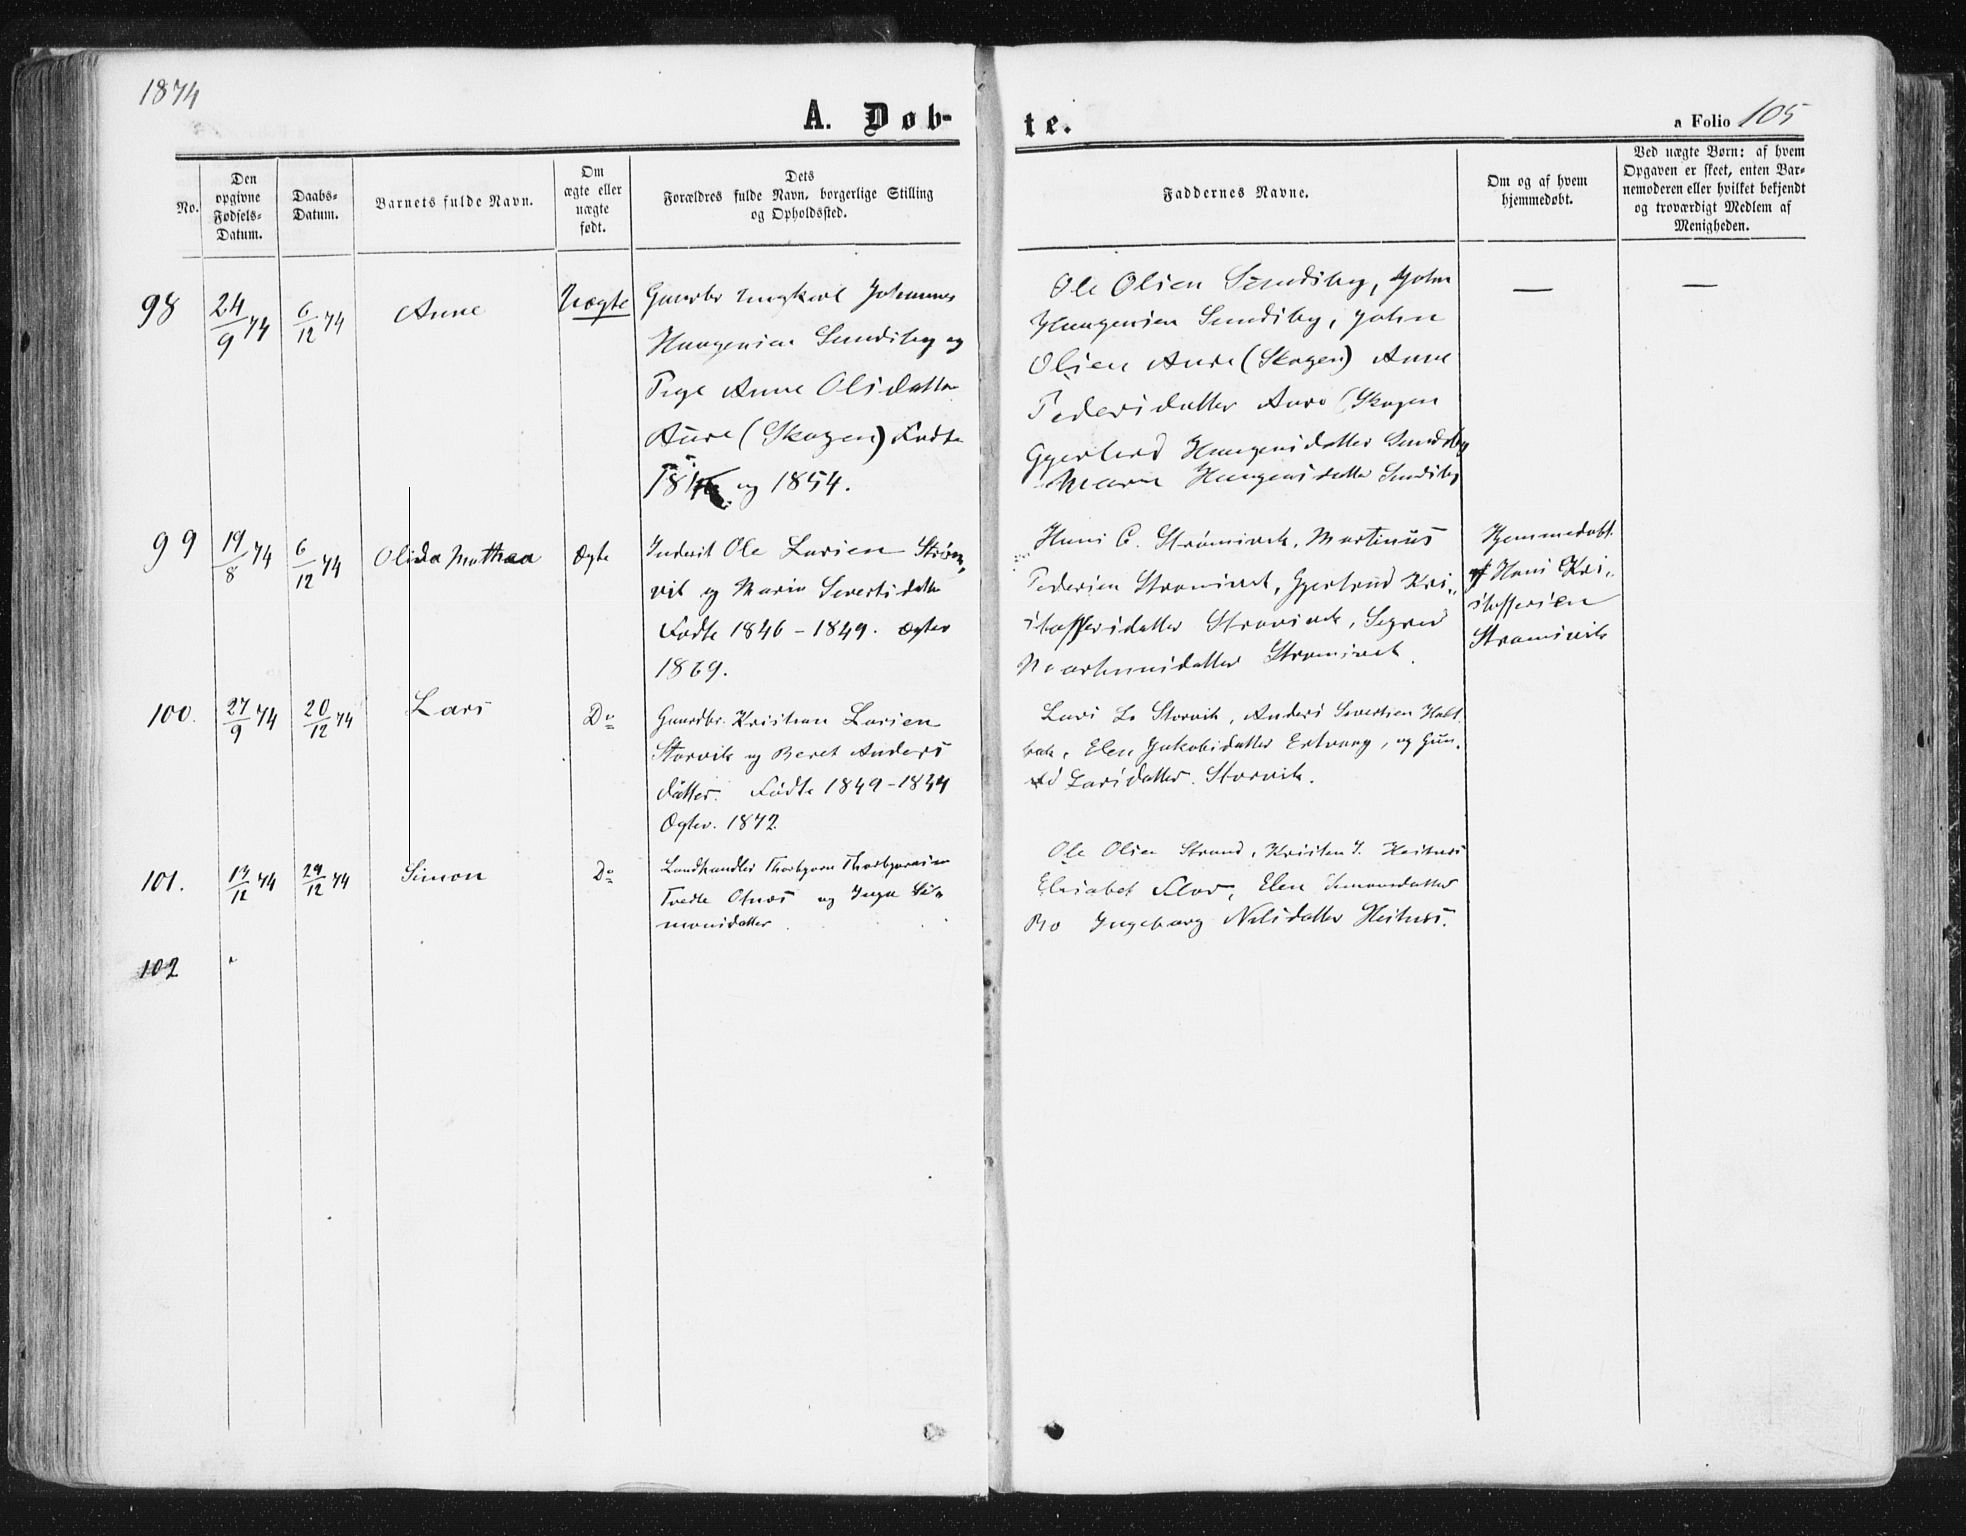 1874
A. Døb-
te.
a Folio 105
No.
Den
opgivne
Fødsels-
Datum.
Daabs-
Datum.
Barnets fulde Navn.
Om
ægte eller
uægte
født.
Dets
Forældres fulde Navn, borgerlige Stilling
og Opholdssted.
Faddernes Navne.
Om og af hvem
hjemmedøbt.
Ved uægte Børn: af hvem
Opgaven er skeet, enten Bar-
nemoderen eller hvilket bekjendt
og troværdigt Medlem af
Menigheden.
98
24/9 74
6/12 74
Anne
Uægte
Gaardbr Ungkarl Johannes
Haagensen Sundsby og
Pige Anne Olsdatter
Aure (Skagen) Fødte
og 1854.
Ole Olsen Sundsby, John
Haagensen Sundsby, John
Olsen Aure (Skagen) Anne
Pedersdatter Aure (Skagen
Haagensdatter Sundsby
Haagensdatter Sundsby
—
—
99
19/8 74
6/12 74
Olida Mathea
Ægte
Inderst Ole Larsen Strøms-
vik og Maria Sivertsdatter
Fødte 1846 - 1849. Ægtev
1869.
Hans C. Strømsvik, Martinus
Pedersen Strømsvik, Gjertrud Kri-
stoffersdatter Strømsvik, Sigrid
Strømsvik
Hjemmedøbt.
af Hans Kri-
stoffersen
Strømsvik
100.
27/9 74
20/12 74
Lars
Do
Gaardbr. Kristian Larsen
Storvik og Beret Anders
datter. Fødte 1849 - 1844
Ægtev. 1872.
Lars L. Storvik, Anders Sivertsen
Elen Jakobsdatter Ertvaag, og Gun-
Larsdatter Storvik.
101.
14/12 74
29/12 74
Simon
Do
Landhandler Thorbjørn Thorbjørnsen
Tredte Otnes og Inga Si-
monsdatter
Ole Olsen Strand, Kristen J. Heitnes
Elisabet Flor, Elen Simonsdatter
Bo Ingeborg Nilsdatter Heitnes.
102